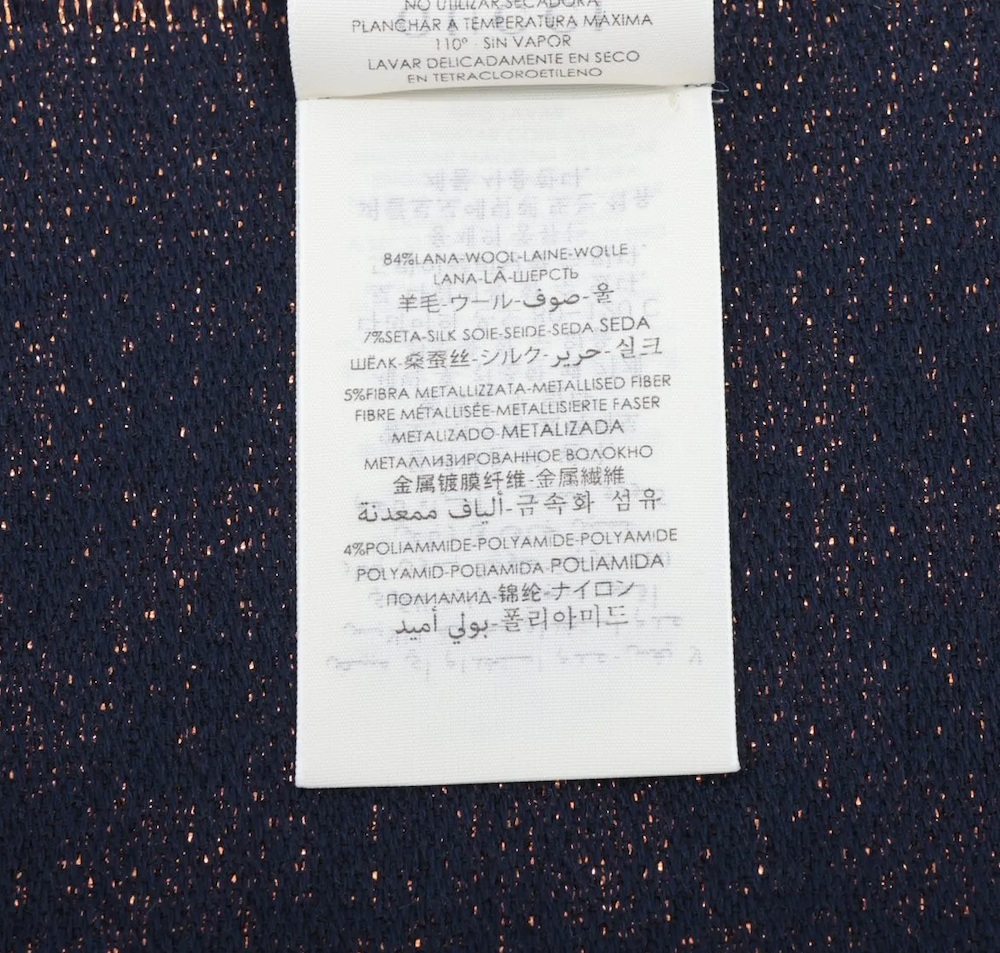 NO UTILIZAR SECADORA
PLANCHAR A TEMPERATURA MÁXIMA
110° SIN VAPOR
LAVAR DELICADAMENTE EN SECO
EN TETRACLOROETILENO
84%LANA-WOOL-LAINE-WOLLE
LANA-LÃ-ШЕРСТЬ
羊毛-ウール-صوف-울
7%SETA-SILK SOIE-SEIDE-SEDA SEDA
ШЁЛК-桑蚕丝-シルク-حرير-실크
5%FIBRA METALLIZZATA-METALLISED FIBER
FIBRE MÉTALLISÉE-METALLISIERTE FASER
METALIZADO-METALIZADA
МЕТАЛЛИЗИРОВАННОЕ ВОЛОКНО
金属镀膜纤维-金属繊維
ألياف ممعدنة-금속화 섬유
4%POLIAMMIDE-POLYAMIDE-POLYAMIDE
POLYAMID-POLIAMIDA-POLIAMIDA
ПОЛИАМИД-锦纶-ナイロン
بولي أميد-폴리아미드